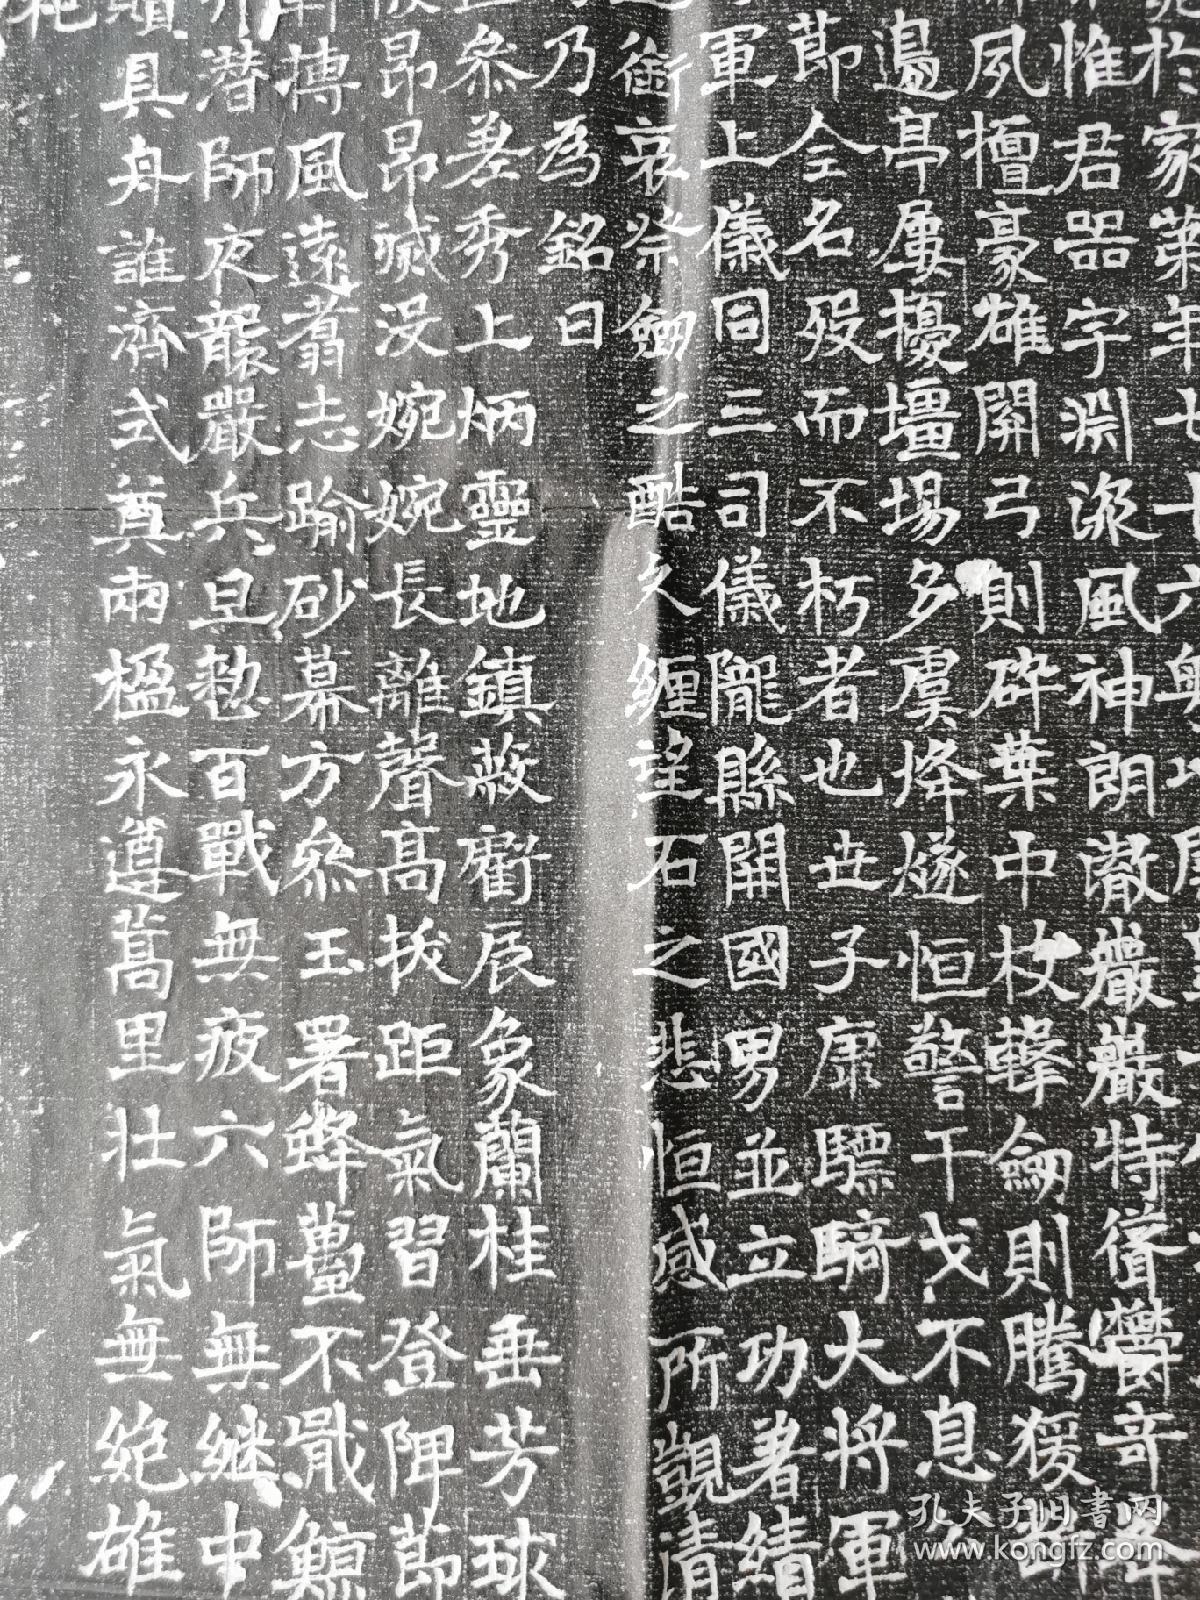 於家第年七十六粵
惟君器宇淵深風神朗澈巖巖特偣欝奇
夙擅豪雄開弓則碎葉中杖擊劒則騰猨
邊亭屢擾壃場多虞烽燧恒警干戈不息
節全名歿而不朽者也世子康驃騎大將軍
軍上儀同三司儀隴縣開國男並立功著績
銜哀祭劒之酷久纏瑳石之悲恒感所觀清
乃為銘曰
叅差秀上炳靈地鎮蔽虧辰象蘭桂垂芳球
昂昂滅没婉婉長離聲高拔距氣習登陴節
摶風遠翥志踰砂幕方叅玉署蜂蠆不戢鯨
潛師夜襲嚴兵旦勒百戰無疲六師無継中
具舟誰濟式奠兩楹永遵蒿里壯氣無絶雄
孔夫子旧书网
www.kongfz.com